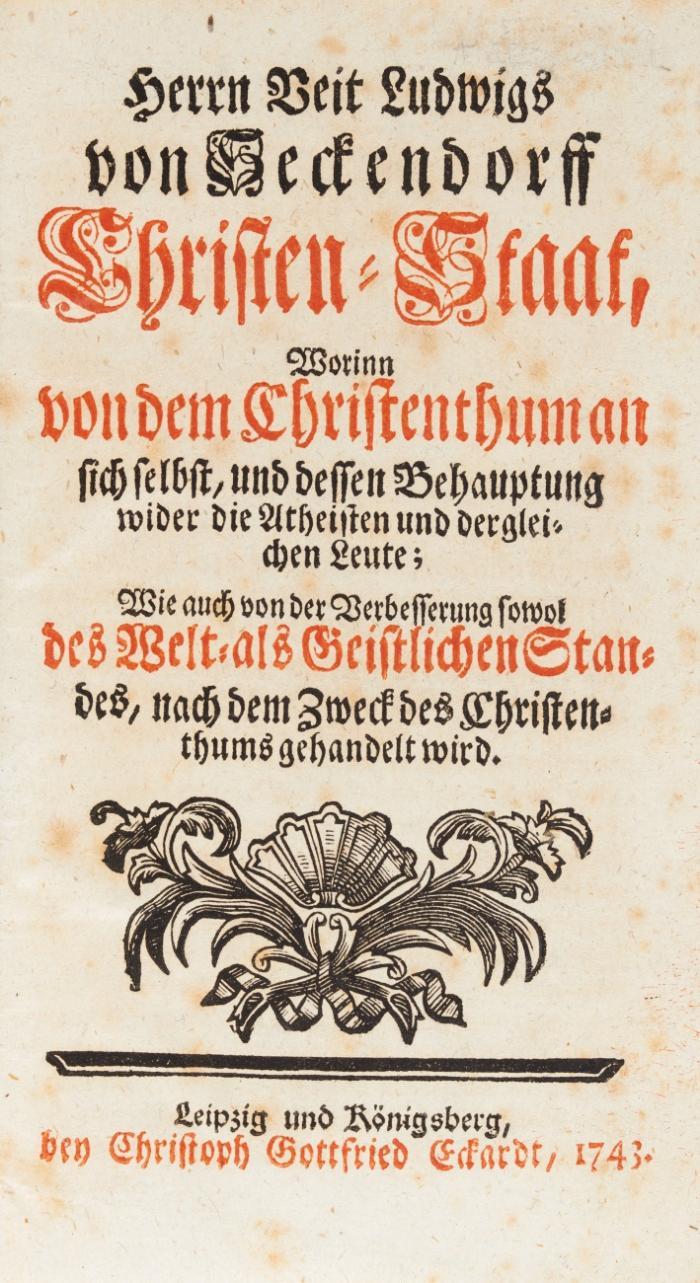 Herrn Veit Ludwigs
von Seckendorff
Christen-Staat,
Worinn
von dem Christenthum an
sich selbst, und dessen Behauptung
wider die Atheisten und derglei-
chen Leute;
Wie auch von der Verbesserung sowol
des Welt-als Geistlichen Stan-
des, nach dem Zweck des Christen-
thums gehandelt wird.
Leipzig und Königsberg,
bey Christoph Gottfried Eckardt, 1743.